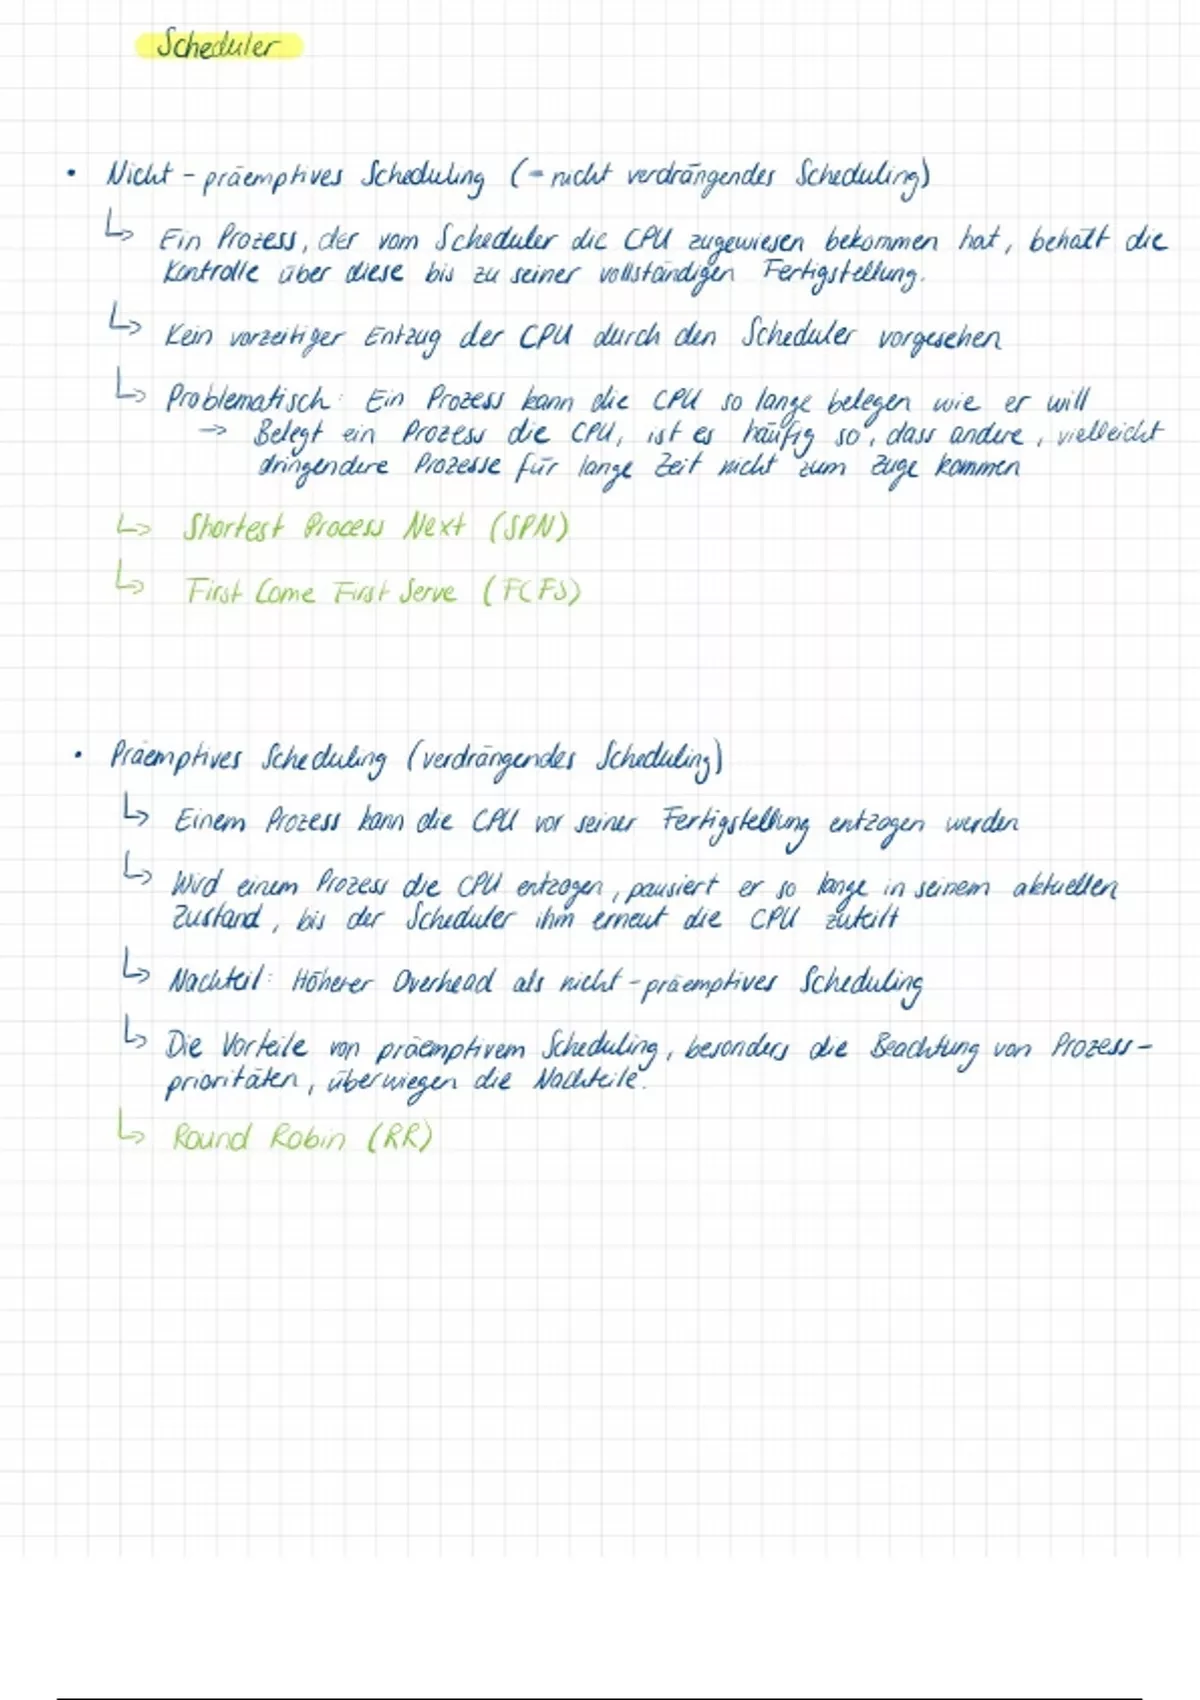 Scheduler
• Nicht-präemptives Scheduling (= nicht verdrängendes Scheduling)
↳ Ein Prozess, der vom Scheduler die CPU zugewiesen bekommen hat, behält die
Kontrolle über diese bis zu seiner vollständigen Fertigstellung.
↳ Kein vorzeitiger Entzug der CPU durch den Scheduler vorgesehen
↳ Problematisch: Ein Prozess kann die CPU so lange belegen wie er will
→ Belegt ein Prozess die CPU, ist es häufig so, dass andere, vielleicht
dringendere Prozesse für lange Zeit nicht zum Zuge kommen
↳ Shortest Process Next (SPN)
↳ First Come First Serve (FCFS)
• Präemptives Scheduling (verdrängendes Scheduling)
↳ Einem Prozess kann die CPU vor seiner Fertigstellung entzogen werden
↳ Wird einem Prozess die CPU entzogen, pausiert er so lange in seinem aktuellen
Zustand, bis der Scheduler ihm erneut die CPU zuteilt
↳ Nachteil: Höherer Overhead als nicht-präemptives Scheduling
↳ Die Vorteile von präemptivem Scheduling, besonders die Beachtung von Prozess-
prioritäten, überwiegen die Nachteile.
↳ Round Robin (RR)